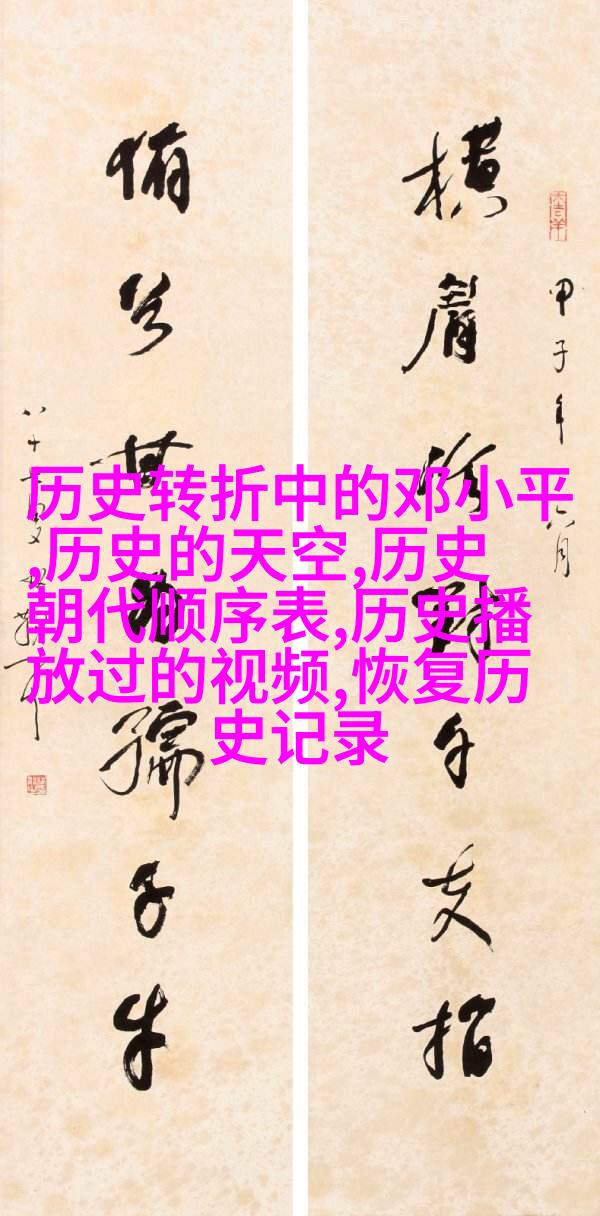 历史转折中的邓小平
,历史的天空,历史
朝代顺序表,历史播
放过的视频,恢复历
史记录
甲子年
横眉冷对千夫指
俯首甘为孺子牛
八十